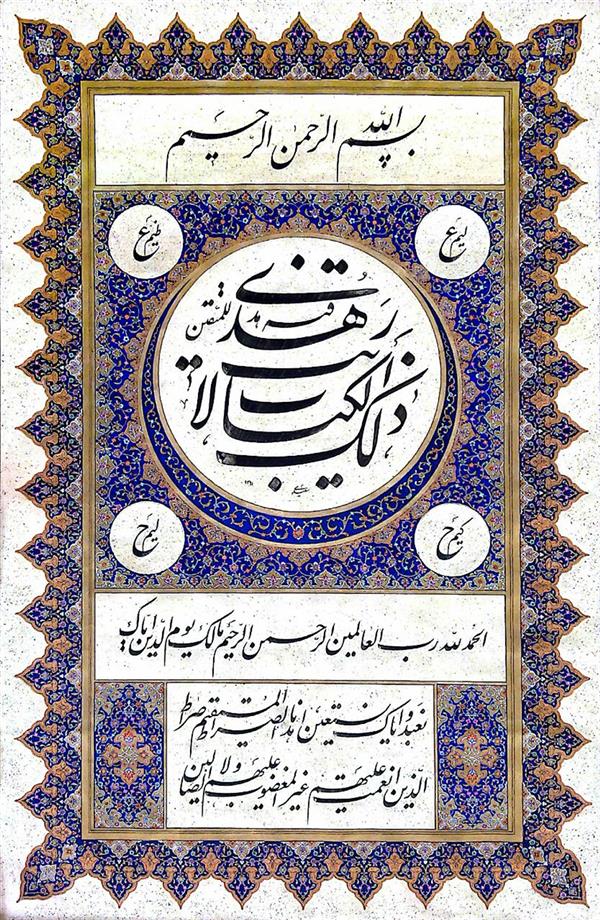 بسم الله الرحمن الرحیم
علیم
عظیم
ذلک الکتاب لا ریب فیه هدی للمتقین
حکیم
حلیم
الحمد لله رب العالمین الرحمن الرحیم مالک یوم الدین ایاک
نعبد و ایاک نستعین اهدنا الصراط المستقیم صراط
الذین انعمت علیهم غیر المغضوب علیهم ولا الضالین